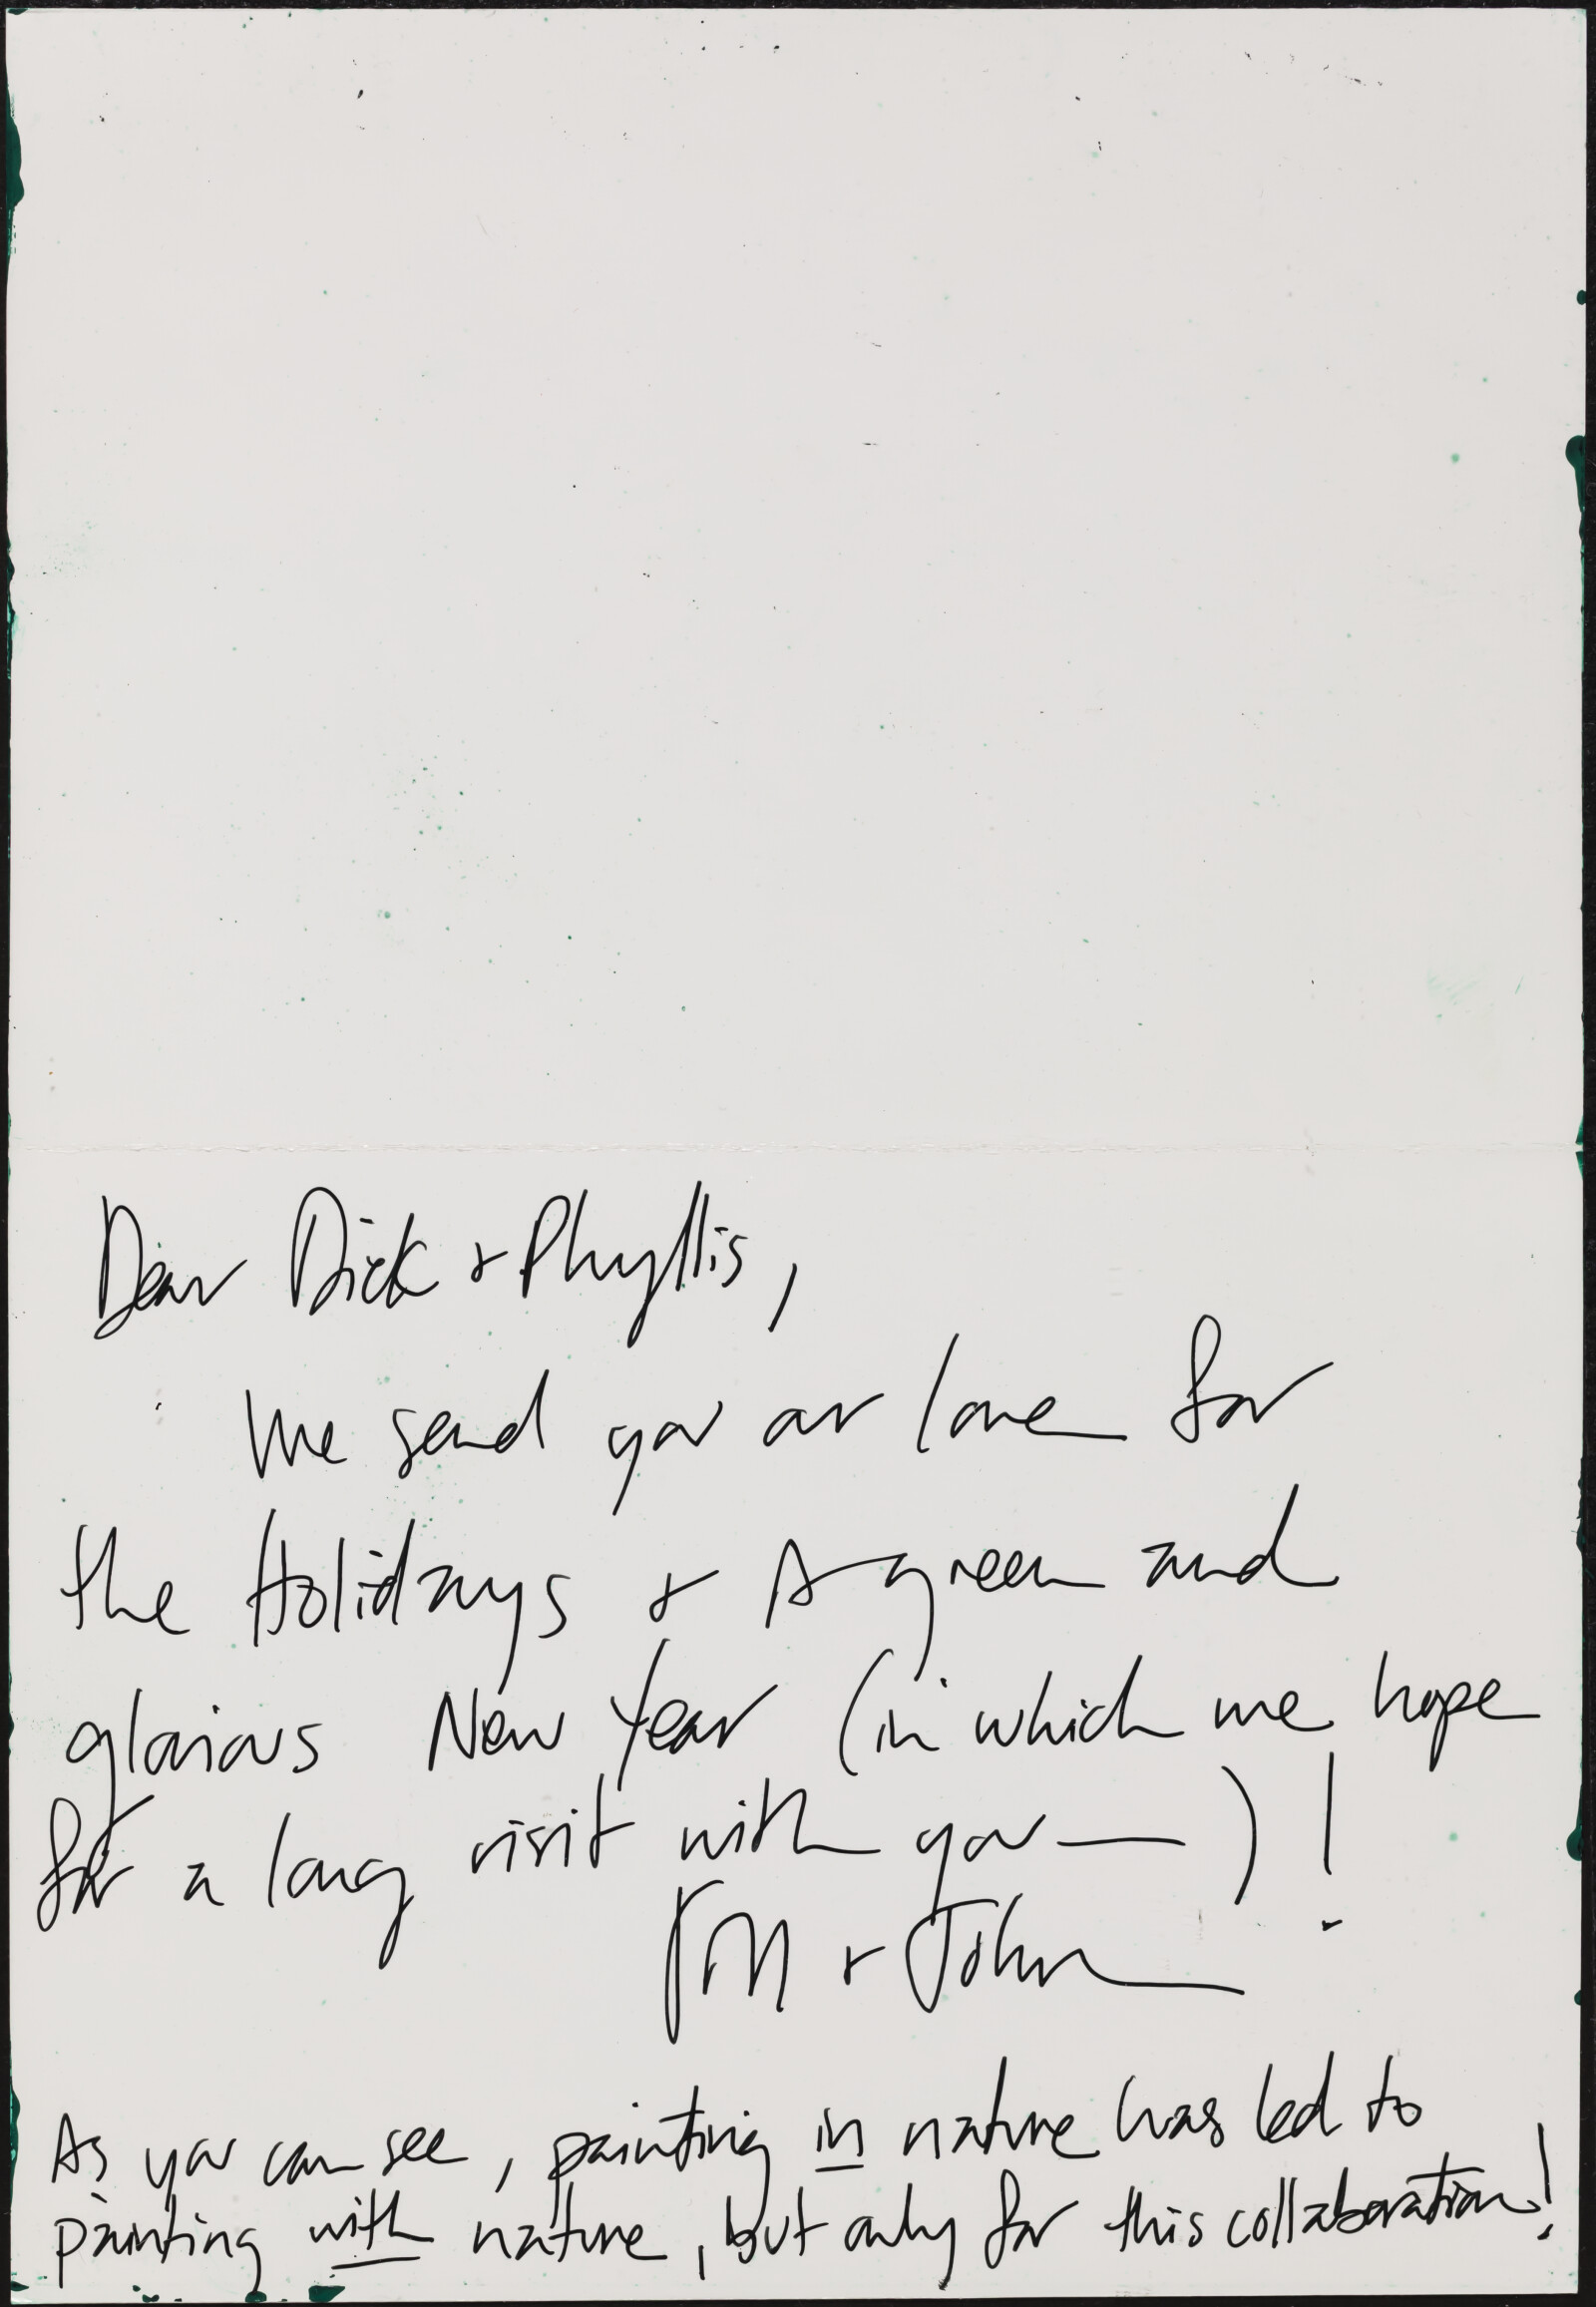 Dear Dick + Phyllis,
We send you our love for
the Holidays + A green and
glorious New Year (in which we hope
for a long visit with you — )!
+ John
As you can see, painting in nature has led to
painting with nature, but only for this collaboration!